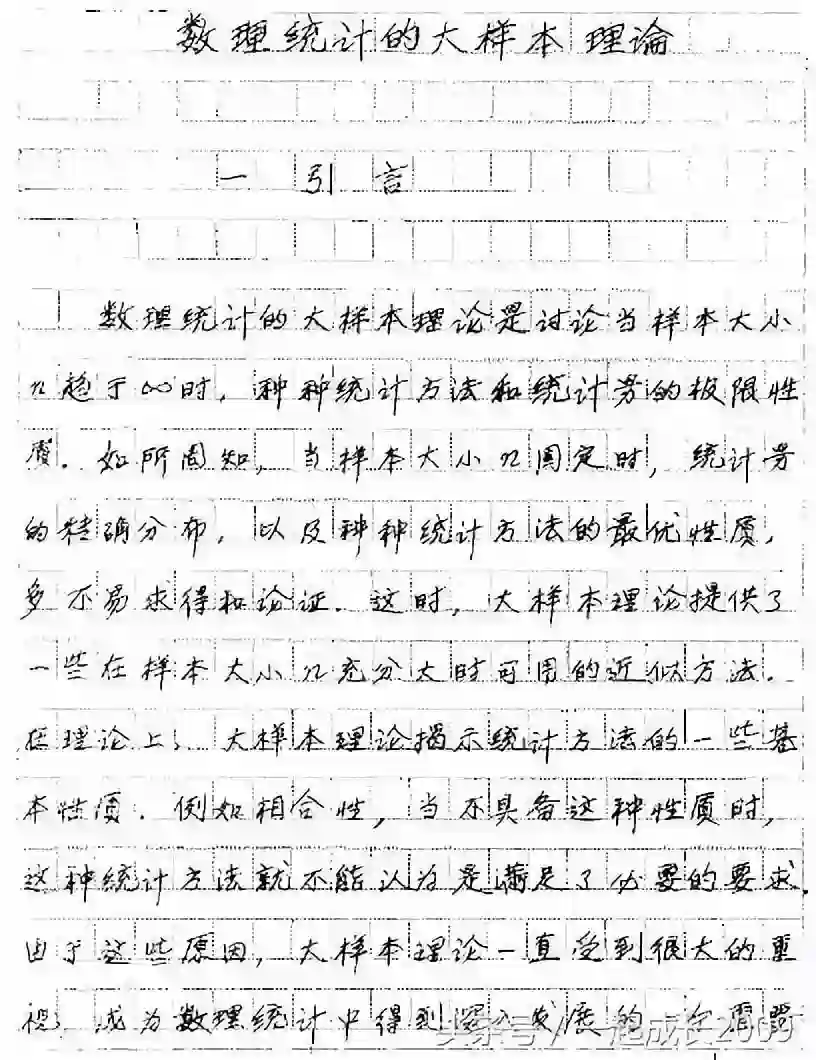 数理统计的大样本理论
一 引言
数理统计的大样本理论是讨论当样本大小
n趋于∞时，种种统计方法和统计量的极限性
质．如所周知，当样本大小n固定时，统计量
的精确分布，以及种种统计方法的最优性质，
多不易求得和论证．这时，大样本理论提供了
一些在样本大小n充分大时可用的近似方法．
在理论上，大样本理论揭示统计方法的一些基
本性质．例如相合性，当不具备这种性质时，
这种统计方法就不能认为是满足了必要的要求．
由于这些原因，大样本理论一直受到很大的重
视，成为数理统计中得到深入发展的一个
头条号/一起成长2009